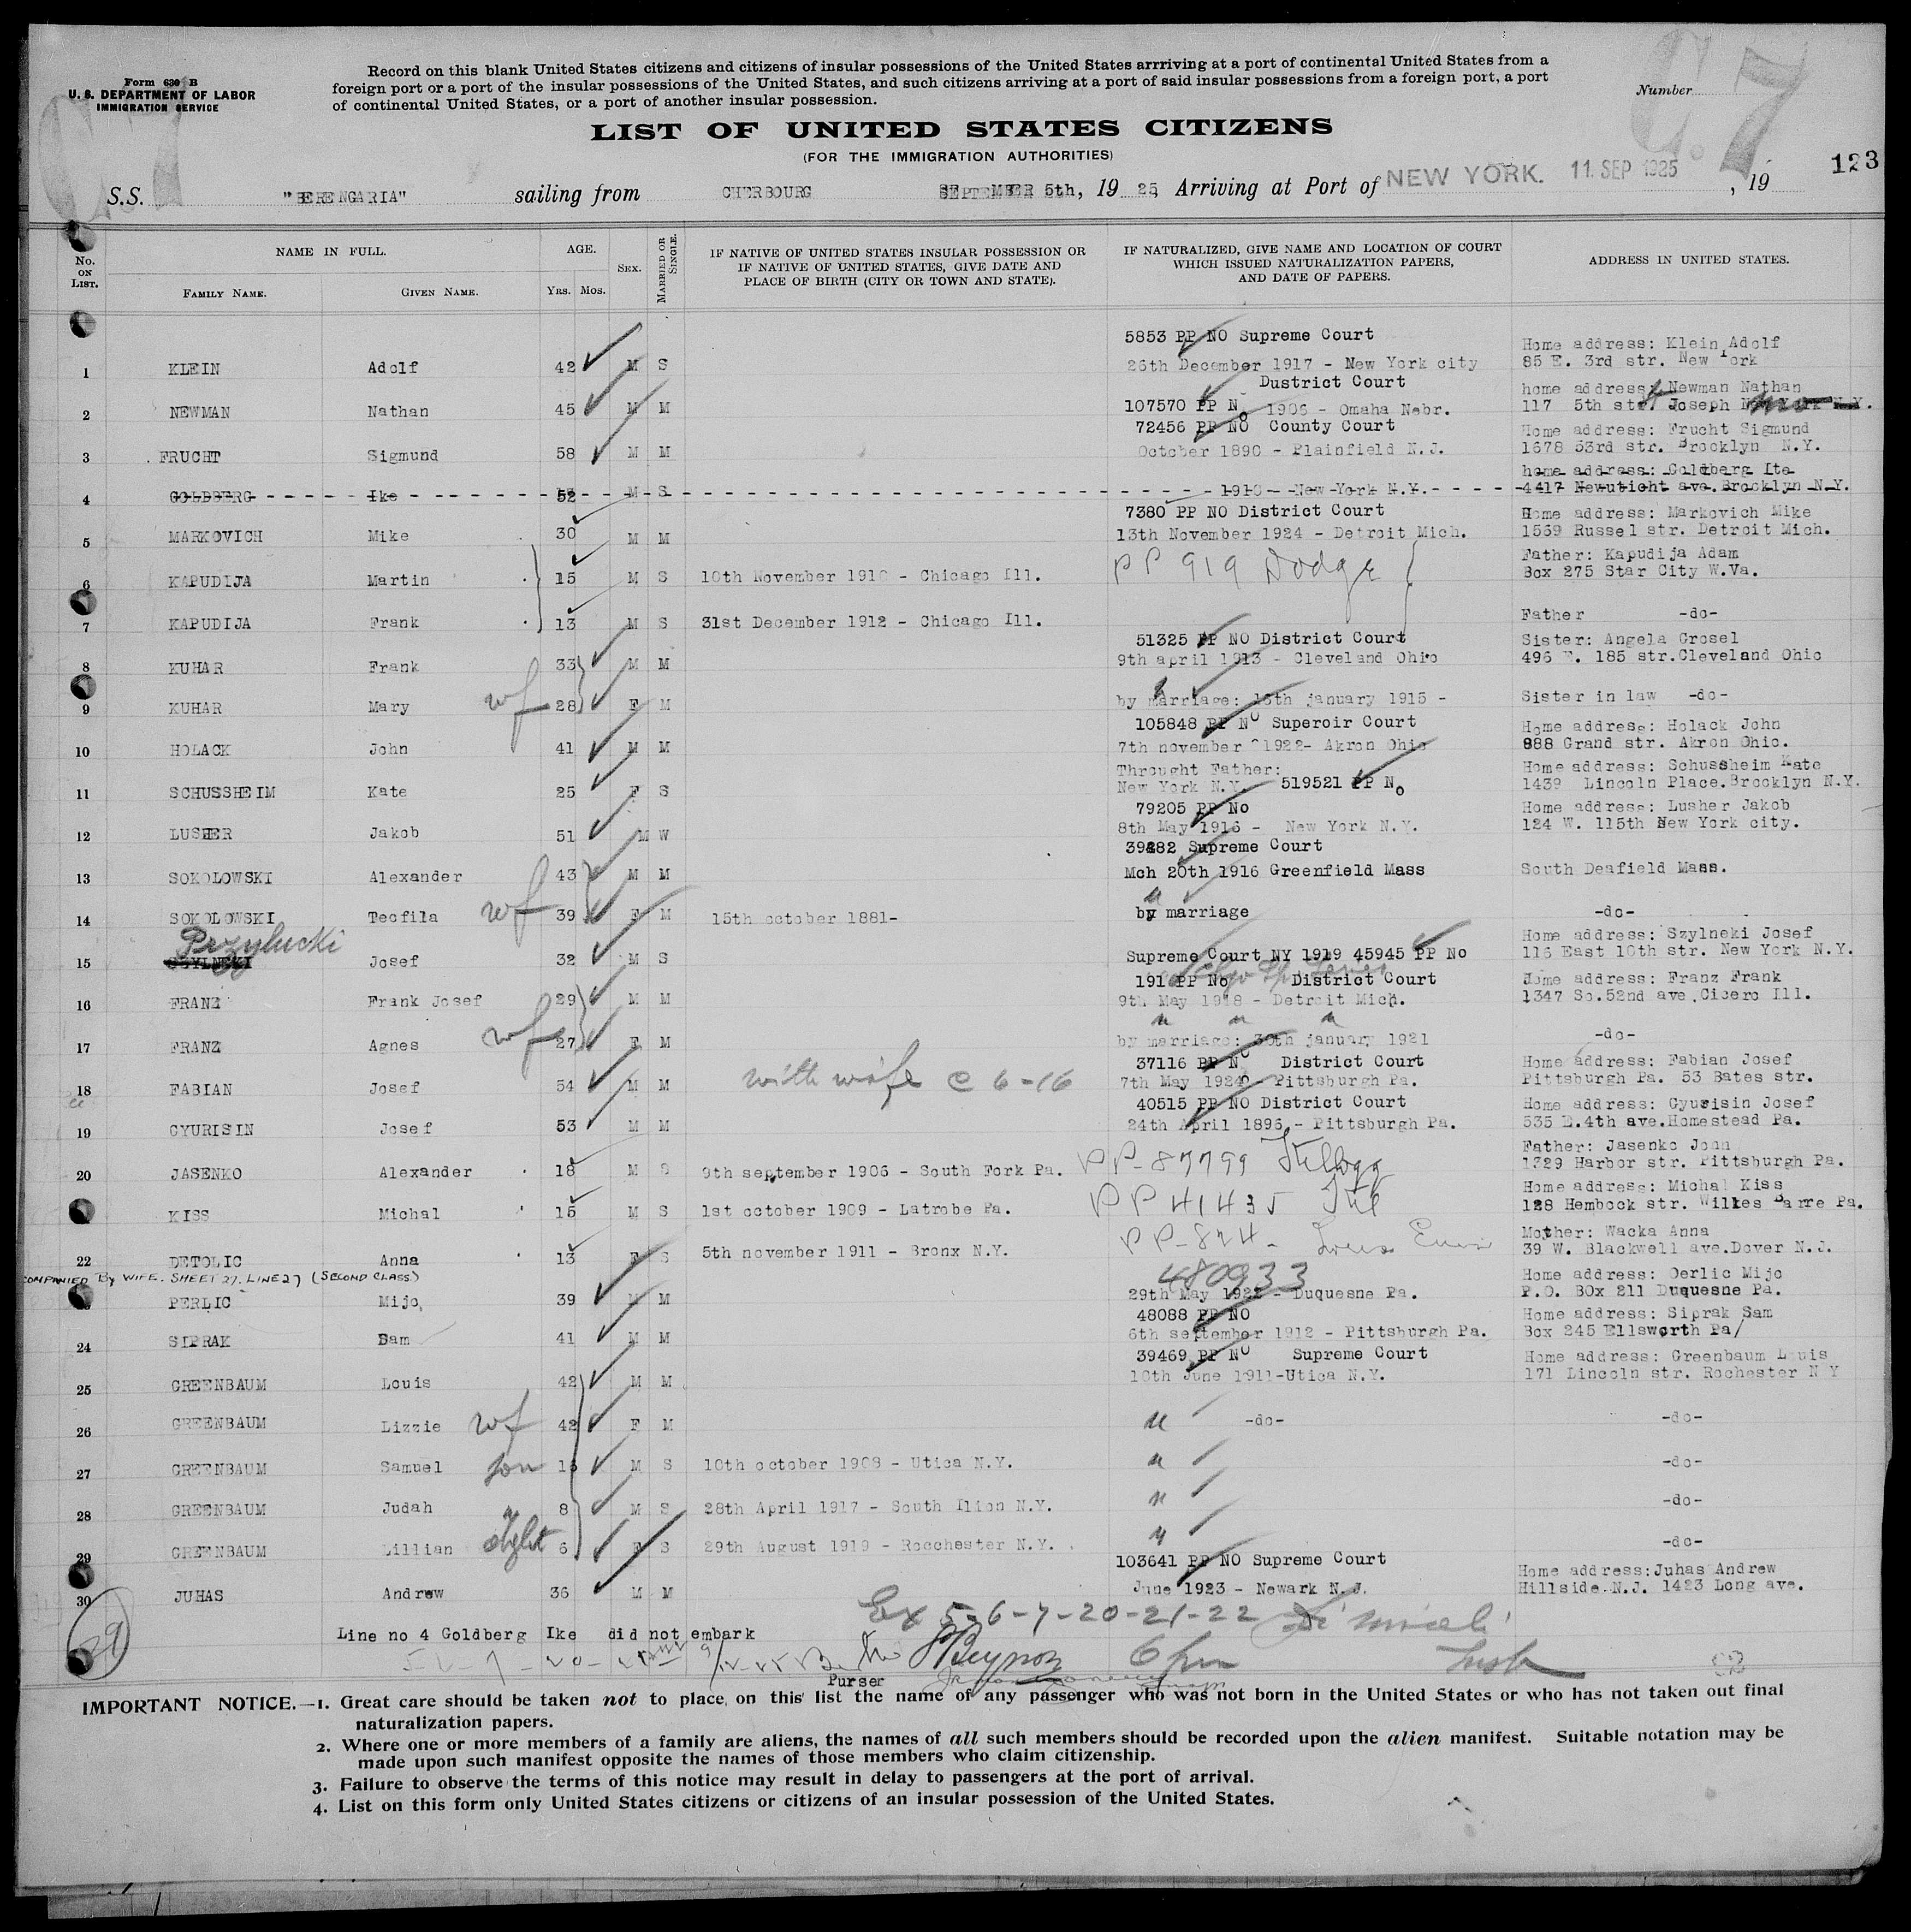 Form 630 B
U. S. DEPARTMENT OF LABOR
IMMIGRATION SERVICE
Record on this blank United States citizens and citizens of insular possessions of the United States arrriving at a port of continental United States from a
foreign port or a port of the insular possessions of the United States, and such citizens arriving at a port of said insular possessions from a foreign port, a port
of continental United States, or a port of another insular possession.
Number
C.7
LIST OF UNITED STATES CITIZENS
(FOR THE IMMIGRATION AUTHORITIES)
123
S.S. "BERENGARIA" sailing from CHERBOURG SEPTEMBER 5th, 19 25, Arriving at Port of NEW YORK. 11 SEP 1925, 19
No. ON LIST.
NAME IN FULL.
FAMILY NAME. GIVEN NAME.
AGE.
Yrs. Mos.
SEX.
MARRIED OR SINGLE.
IF NATIVE OF UNITED STATES INSULAR POSSESSION OR
IF NATIVE OF UNITED STATES, GIVE DATE AND
PLACE OF BIRTH (CITY OR TOWN AND STATE).
IF NATURALIZED, GIVE NAME AND LOCATION OF COURT
WHICH ISSUED NATURALIZATION PAPERS,
AND DATE OF PAPERS.
ADDRESS IN UNITED STATES.
5853 PP NO Supreme Court Home address: Klein Adolf
1 KLEIN Adolf 42 M S 26th December 1917 - New York city 85 E. 3rd str. New York
Dustrict Court home address: Newman Nathan
2 NEWMAN Nathan 45 M M 107570 PP No 1906 - Omaha Nebr. 117 5th str. St Joseph New York N.Y. Mo
72456 PP NO County Court Home address: Frucht Sigmund
3 FRUCHT Sigmund 58 M M October 1890 - Plainfield N.J. 1678 53rd str. Brooklyn N.Y.
home address: Goldberg Ite
4 GOLDBERG Ike 52 M S 1918 - New York N.Y. 4417 Newuticht ave. Brooklyn N.Y.
7380 PP NO District Court Home address: Markovich Mike
5 MARKOVICH Mike 30 M M 13th November 1924 - Detroit Mich. 1559 Russel str. Detroit Mich.
Father: Kapudija Adam
6 KAPUDIJA Martin 15 M S 10th November 1910 - Chicago Ill. PP 919 Dodge Box 275 Star City W.Va.
7 KAPUDIJA Frank 13 M S 31st December 1912 - Chicago Ill. Father -do-
51325 PP NO District Court Sister: Angela Grosel
8 KUHAR Frank 33 M M 9th april 1913 - Cleveland Ohio 496 E. 185 str.Cleveland Ohio
9 KUHAR Mary wf 28 F M by marriage: 18th january 1915 - Sister in law -do-
105848 PP No Superoir Court Home address: Holack John
10 HOLACK John 41 M M 7th november 1922- Akron Ohio 888 Grand str. Akron Ohio.
Throught Father: Home address: Schussheim Kate
11 SCHUSSHEIM Kate 25 F S New York N.Y. 519521 PP No 1439 Lincoln Place.Brooklyn N.Y.
79205 PP No Home address: Lusher Jakob
12 LUSHER Jakob 51 M W 8th May 1916 - New York N.Y. 124 W. 115th New York city.
39482 Supreme Court
13 SOKOLOWSKI Alexander 43 M M Mch 20th 1916 Greenfield Mass South Deafield Mass.
14 SOKOLOWSKI Teofila wf 39 F M 15th october 1881- by marriage -do-
Przylucki Home address: Szylneki Josef
15 SZYLNEKI Josef 32 M S Supreme Court NY 1919 45945 PP No 116 East 10th str. New York N.Y.
191 PP No District Court Home address: Franz Frank
16 FRANZ Frank Josef 29 M M 9th May 1918 - Detroit Mich. 1347 So.52nd ave.Cicero Ill.
17 FRANZ Agnes wf 27 F M by marriage: 30th january 1921 -do-
37116 PP No District Court Home address: Fabian Josef
18 FABIAN Josef 54 M M with wife C 6-16 7th May 1924 - Pittsburgh Pa. Pittsburgh Pa. 53 Bates str.
40515 PP NO District Court Home address: Gyurisin Josef
19 GYURISIN Josef 53 M M 24th April 1896 - Pittsburgh Pa. 535 E.4th ave.Homestead Pa.
Father: Jasenko John
20 JASENKO Alexander 18 M S 9th september 1906 - South Fork Pa. PP-87799 Kellogg 1329 Harbor str. Pittsburgh Pa.
Home address: Michal Kiss
KISS Michal 15 M S 1st october 1909 - Latrobe Pa. PP 41435 128 Hembock str. Wilkes Barre Pa.
Mother: Wacka Anna
22 DETOLIC Anna 13 F S 5th november 1911 - Bronx N.Y. PP-824- 39 W. Blackwell ave.Dover N.J.
COMPANIED By WIFE. SHEET 27. LINE 27 (SECOND CLASS) 480933 Home address: Oerlic Mijo
PERLIC Mijo 39 M M 29th May 1922 - Duquesne Pa. P.O. BOx 211 Duquesne Pa.
48088 PP NO Home address: Siprak Sam
24 SIPRAK Sam 41 M M 6th september 1912 - Pittsburgh Pa. Box 245 Ellsworth Pa/
39469 PP No Supreme Court Home address: Greenbaum Louis
25 GREENBAUM Louis 42 M M 10th June 1911-Utica N.Y. 171 Lincoln str. Rochester N Y
26 GREENBAUM Lizzie wf 42 F M -do- -do-
27 GREENBAUM Samuel son 16 M S 10th october 1908 - Utica N.Y. -do-
28 GREENBAUM Judah 8 M S 28th April 1917 - South Ilion N.Y. -do-
29 GREENBAUM Lillian 6 F S 29th August 1919 - Rocchester N.Y. -do-
103641 PP NO Supreme Court Home address:Juhas Andrew
30 JUHAS Andrew 36 M M June 1923 - Newark N.J. Hillside.N.J. 1423 Long ave.
Ex 5-6-7-20-21-22
29
Line no 4 Goldberg Ike did not embark
Purser
IMPORTANT NOTICE.—1. Great care should be taken not to place on this list the name of any passenger who was not born in the United States or who has not taken out final
naturalization papers.
2. Where one or more members of a family are aliens, the names of all such members should be recorded upon the alien manifest. Suitable notation may be
made upon such manifest opposite the names of those members who claim citizenship.
3. Failure to observe the terms of this notice may result in delay to passengers at the port of arrival.
4. List on this form only United States citizens or citizens of an insular possession of the United States.